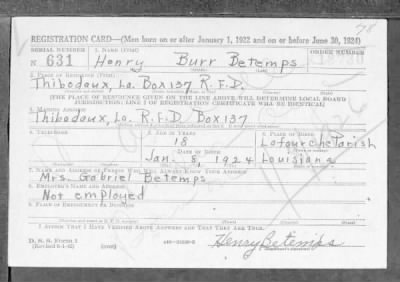 78
REGISTRATION CARD—(Men born on or after January 1, 1922 and on or before June 30, 1924)
SERIAL NUMBER 1. NAME (Print) ORDER NUMBER
N 631 Henry Burr Betemps
(First) (Middle) (Last)
2. PLACE OF RESIDENCE (Print)
Thibodaux, La. Box 137 R.F.D.
(THE PLACE OF RESIDENCE GIVEN ON THE LINE ABOVE WILL DETERMINE LOCAL BOARD
JURISDICTION; LINE 2 OF REGISTRATION CERTIFICATE WILL BE IDENTICAL)
3. MAILING ADDRESS
Thibodaux, La. R.F.D. Box 137
4. TELEPHONE 5. AGE IN YEARS 6. PLACE OF BIRTH
18 Lafourche Parish
DATE OF BIRTH
Jan. 8, 1924 Louisiana
7. NAME AND ADDRESS OF PERSON WHO WILL ALWAYS KNOW YOUR ADDRESS
Mrs. Gabriel Betemps
8. EMPLOYER'S NAME AND ADDRESS
Not employed
9. PLACE OF EMPLOYMENT OR BUSINESS
I AFFIRM THAT I HAVE VERIFIED ABOVE ANSWERS AND THAT THEY ARE TRUE.
D. S. S. Form 1 (over) Henry Betemps